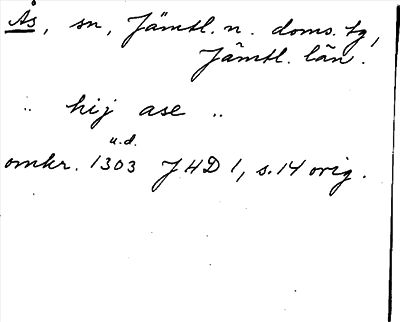 Ås, sn, Jämtl. n. doms. tg,
Jämtl. län.
.. hij ase ..
u.d.
omkr. 1303 JHD 1, s. 14 orig.